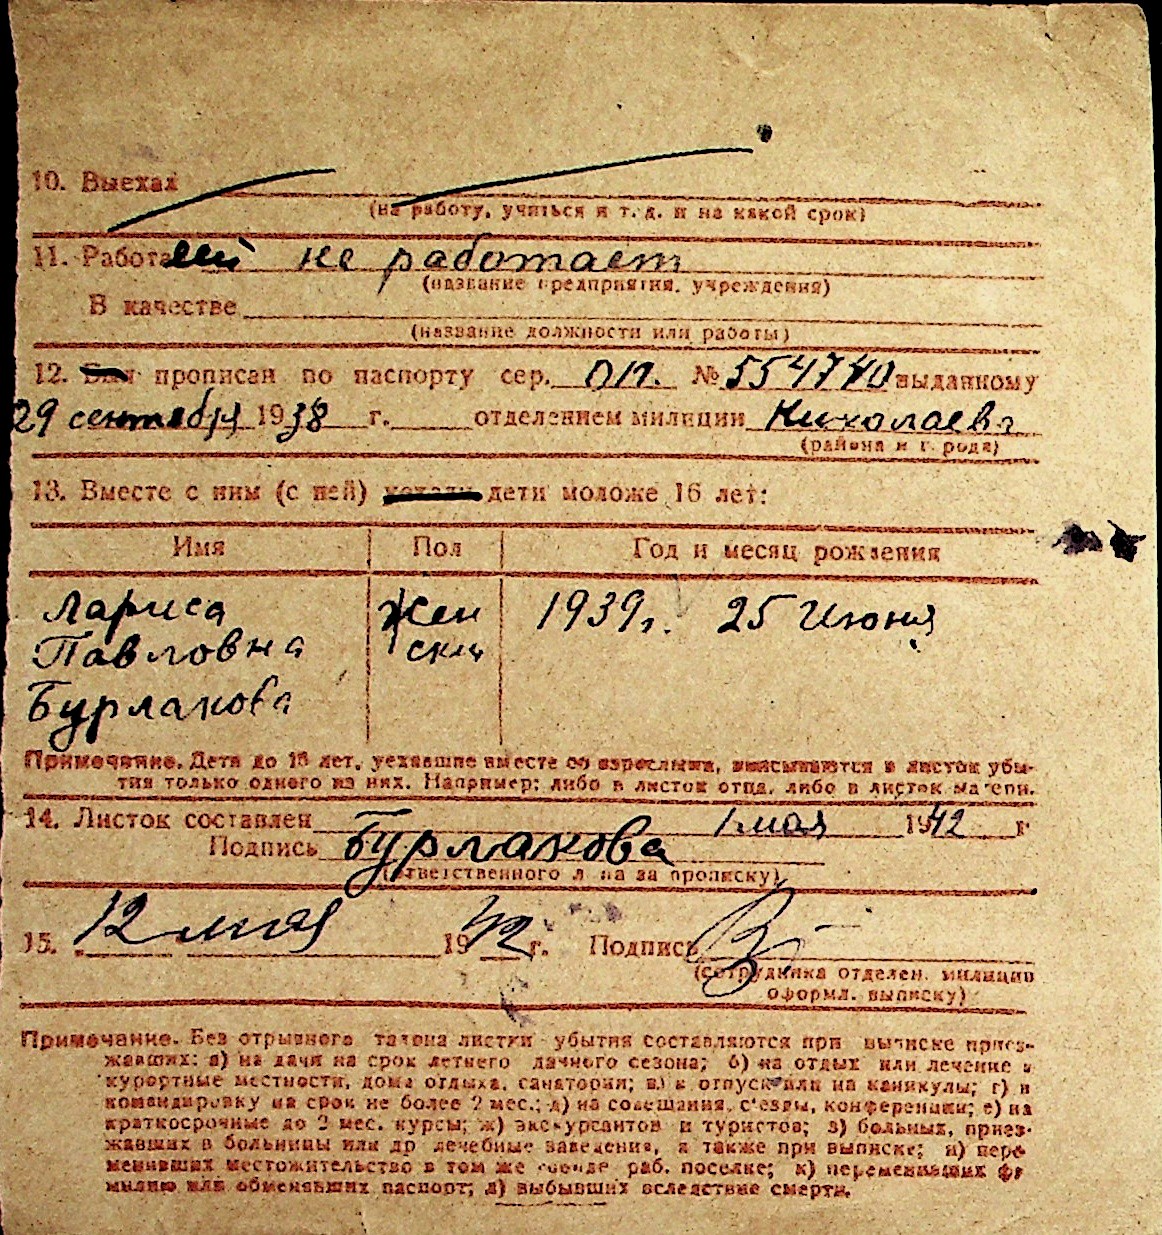 10. Выехал
(на работу, учиться и т. д. и на какой срок)
11. Работает не работает
(название предприятия, учреждения)
В качестве
(название должности или работы)
12. прописан по паспорту сер. № 554740 выданному
29 сентября 1938 г. отделением милиции Николаева
(района и города)
13. Вместе с ним (с ней) дети моложе 16 лет:
Имя Пол Год и месяц рождения
Лариса Жен 1939 г. 25 Июня
Павловна ский
Бурлакова
Примечание. Дети до 16 лет, уехавшие вместе со взрослыми, вписываются в листок убы-
тия только одного из них. Например: либо в листок отца, либо в листок матери.
14. Листок составлен 1 мая 1942 г
Подпись Бурлакова
(ответственного лица за прописку)
15. 12 мая 1942 г. Подпись
(сотрудника отделен. милиции
оформл. выписку)
Примечание. Без отрывного талона листки убытия составляются при выписке приез-
жавших: а) на дачи на срок летнего дачного сезона; б) на отдых или лечение в
курортные местности, дома отдыха, санатории; в) в отпуск или на каникулы; г) в
командировку на срок не более 2 мес.; д) на совещания, съезды, конференции; е) на
краткосрочные до 2 мес. курсы; ж) экскурсантов и туристов; з) больных, приез-
жавших в больницы или др лечебные заведения, а также при выписке; и) пере
менивших местожительство в том же городе раб. поселке; к) переменивших фа
милию или обменявших паспорт; л) выбывших вследствие смерти.